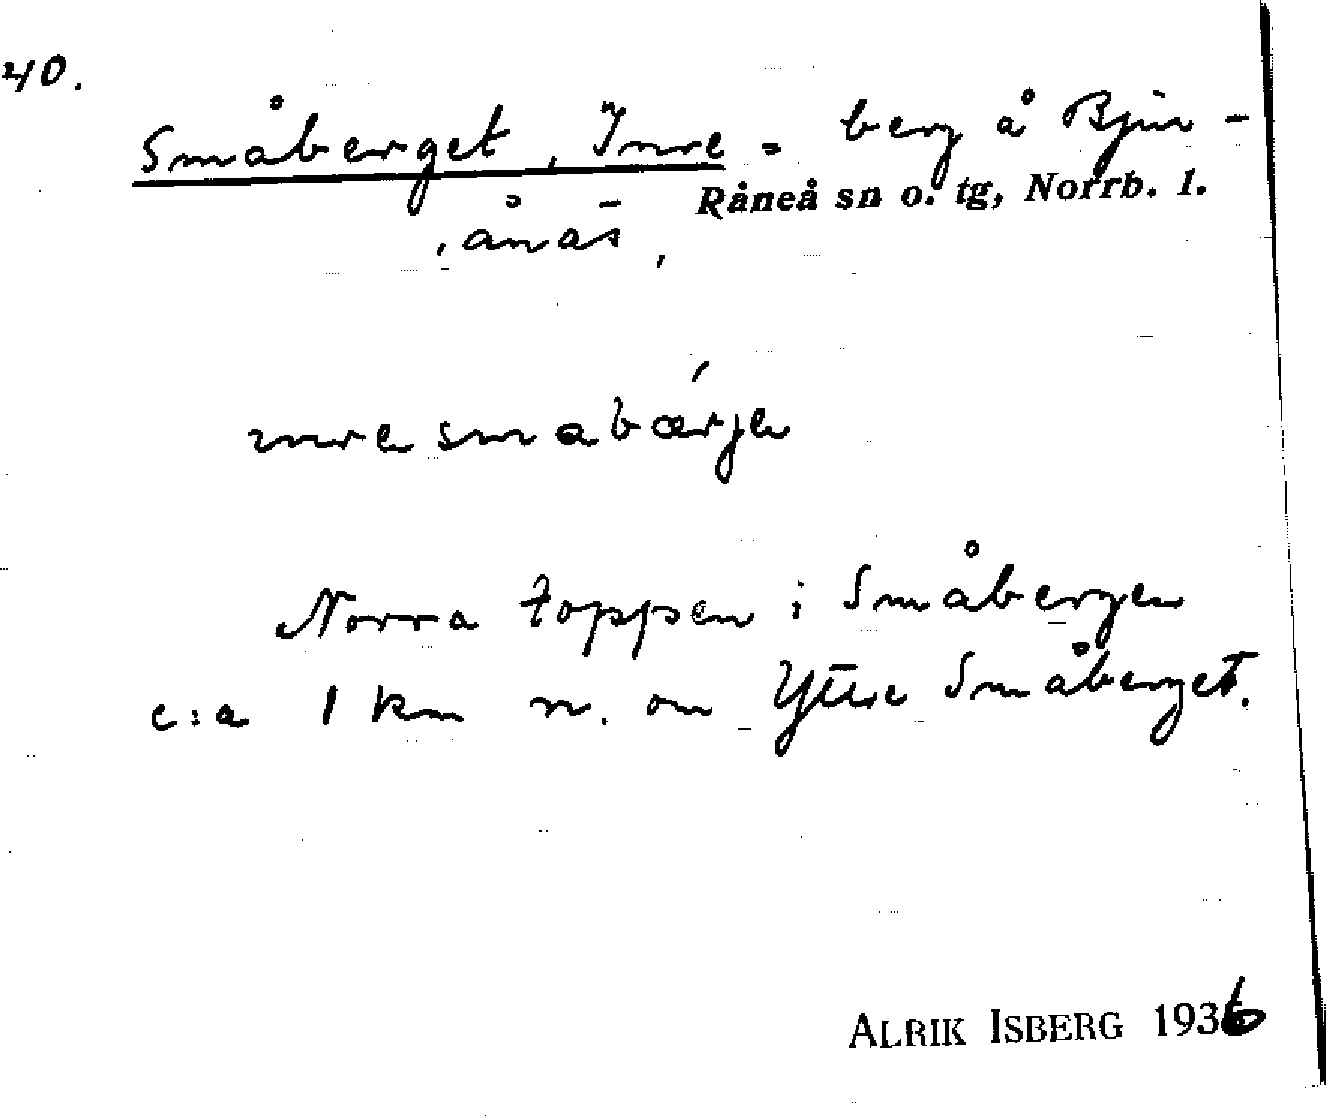 40.
Småberget, Inre = berg å Bjur-
Råneå sn o. tg, Norrb. l.
ånäs,
inre småbærjen
Norra toppen i Småbergen
c:a 1 km n. om Yttre Småberget.
ALRIK ISBERG 1936